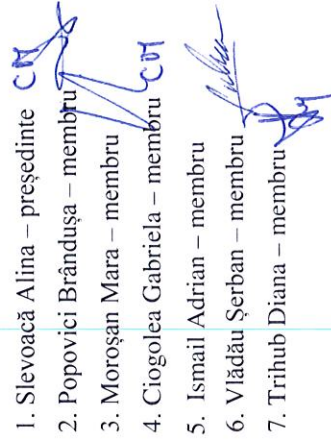 1. Slevoacă Alina – președinte CDM
2. Popovici Brândușa – membru
3. Moroșan Mara – membru
4. Ciogolea Gabriela – membru CDM
5. Ismail Adrian – membru
6. Vlădău Șerban – membru
7. Trihub Diana – membru